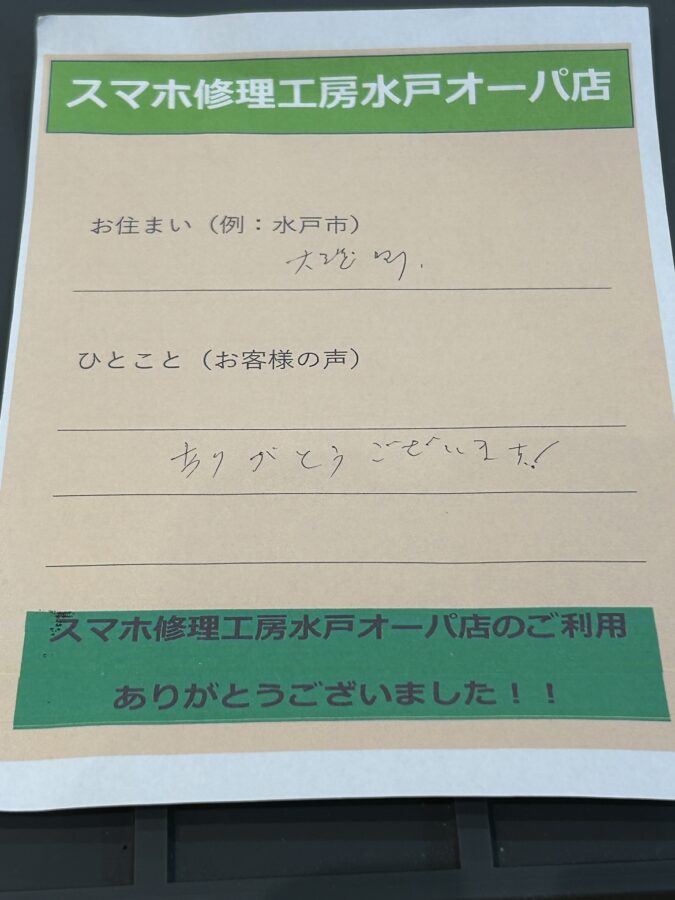 スマホ修理工房水戸オーパ店
お住まい（例：水戸市）
大洗町.
ひとこと（お客様の声）
ありがとうございます!
スマホ修理工房水戸オーパ店のご利用
ありがとうございました！！